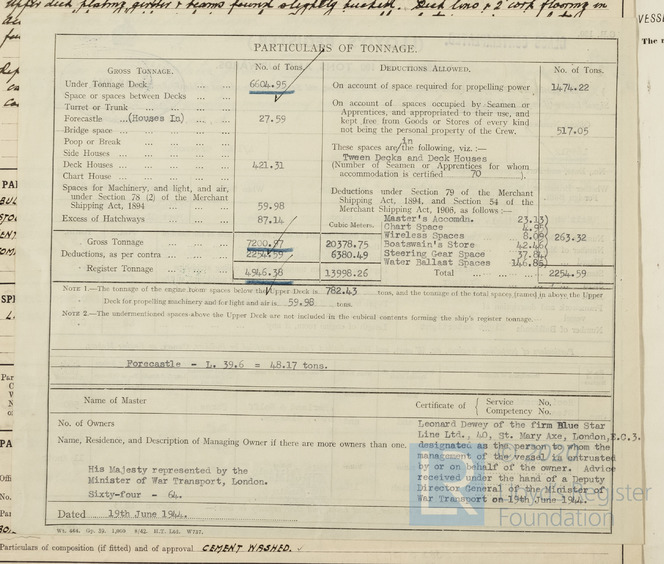 upper deck plating girder & beams found slightly buckled. Deck lino & 2" cork flooring in
VESSE
The n
PARTICULARS OF TONNAGE.
GROSS TONNAGE. No. of Tons. DEDUCTIONS ALLOWED. No. of Tons.
Under Tonnage Deck ... ... 6604.95
Space or spaces between Decks ... ...
Turret or Trunk ... ... ...
Forecastle ...(Houses In) ... ... 27.59
Bridge space ... ... ... ...
Poop or Break ... ... ...
Side Houses ... ... ... ...
Deck Houses ... ... ... 421.31
Chart House ... ... ... ...
Spaces for Machinery, and light, and air,
under Section 78 (2) of the Merchant
Shipping Act, 1894 ... ... 59.98
Excess of Hatchways ... ... 87.14
Cubic Meters.
Gross Tonnage ... 7200.97 20378.75
Deductions, as per contra ... ... 2254.59 6380.49
Register Tonnage ... 4946.38 13998.26
On account of space required for propelling power 1474.22
On account of spaces occupied by Seamen or
Apprentices, and appropriated to their use, and
kept free from Goods or Stores of every kind
not being the personal property of the Crew. 517.05
in
These spaces are/the following, viz. :—
Tween Decks and Deck Houses
(Number of Seamen or Apprentices for whom
accommodation is certified 70 ).
Deductions under Section 79 of the Merchant
Shipping Act, 1894, and Section 54 of the
Merchant Shipping Act, 1906, as follows :—
Master's Accomdn. 23.13)
Chart Space 4.95)
Wireless Spaces 8.09) 263.32
Boatswain's Store 42.46)
Steering Gear Space 37.84)
Water Ballast Spaces 146.85)
Total ... ... ... 2254.59
NOTE 1.—The tonnage of the engine room spaces below the Upper Deck is 782.43 tons, and the tonnage of the total spaces framed in above the Upper
Deck for propelling machinery and for light and air is 59.98 tons.
NOTE 2.—The undermentioned spaces above the Upper Deck are not included in the cubical contents forming the ship's register tonnage.
Forecastle - L. 39.6 = 48.17 tons.
Name of Master Certificate of { Service No.
Competency No.
No. of Owners
Name, Residence, and Description of Managing Owner if there are more owners than one.
His Majesty represented by the
Minister of War Transport, London.
Sixty-four - 64.
Leonard Dewey of the firm Blue Star
Line Ltd., 40, St. Mary Axe, London, E.C.3.
designated as the person to whom the
management of the vessel is entrusted
by or on behalf of the owner. Advice
received under the hand of a Deputy
Director General of the Minister of
War Transport on 19th June 1944.
Dated 19th June 1944.
Lloyd's Register
Foundation
Particulars of composition (if fitted) and of approval CEMENT WASHED.